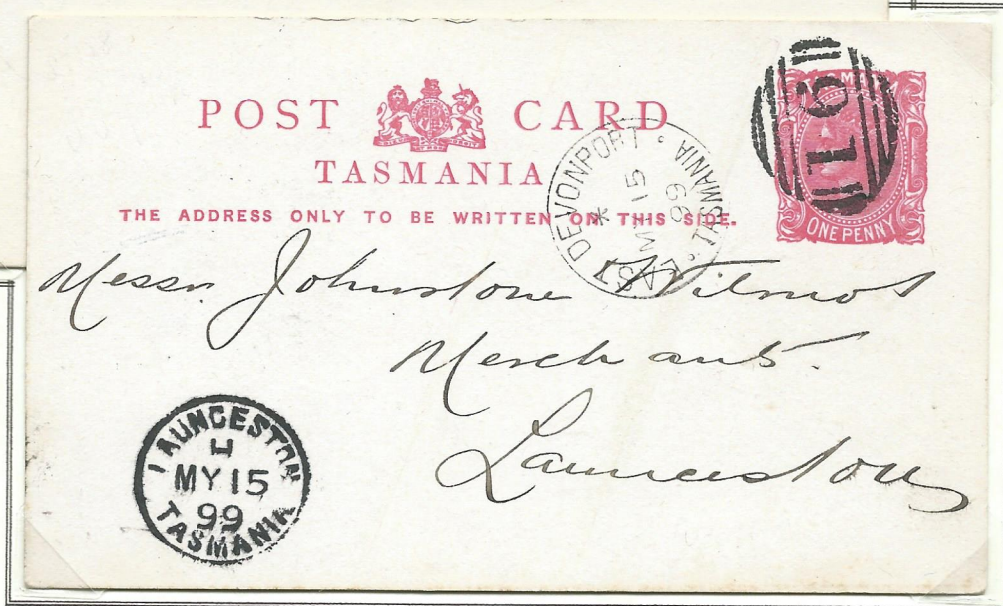 POST CARD
TASMANIA
THE ADDRESS ONLY TO BE WRITTEN ON THIS SIDE.
ONE PENNY
91
ST DEVONPORT . TASMANIA
MY 15
99
Messrs Johnstone & Wilmot
Merchants.
Launceston
LAUNCESTON
H
MY 15
99
TASMANIA